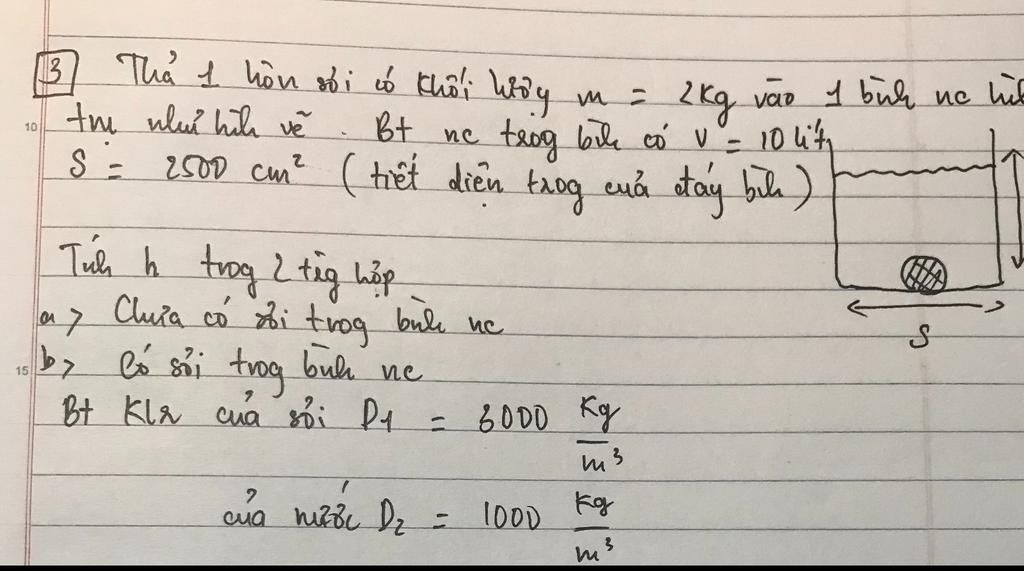 3 Thả 1 hòn sỏi có khối lượng m = 2Kg vào 1 bình nc hìh
trụ như hìh vẽ. Bt nc trog bìh có V = 10 lít,
S = 2500 cm² ( tiết diện trog của đáy bìh )
Tính h trog 2 tšg hợp
a> Chưa có sỏi trog bình nc
b> Có sỏi trog bình nc
S
Bt Klr của sỏi D1 = 3000 Kg/m³
của nước D₂ = 1000 Kg/m³
10
15